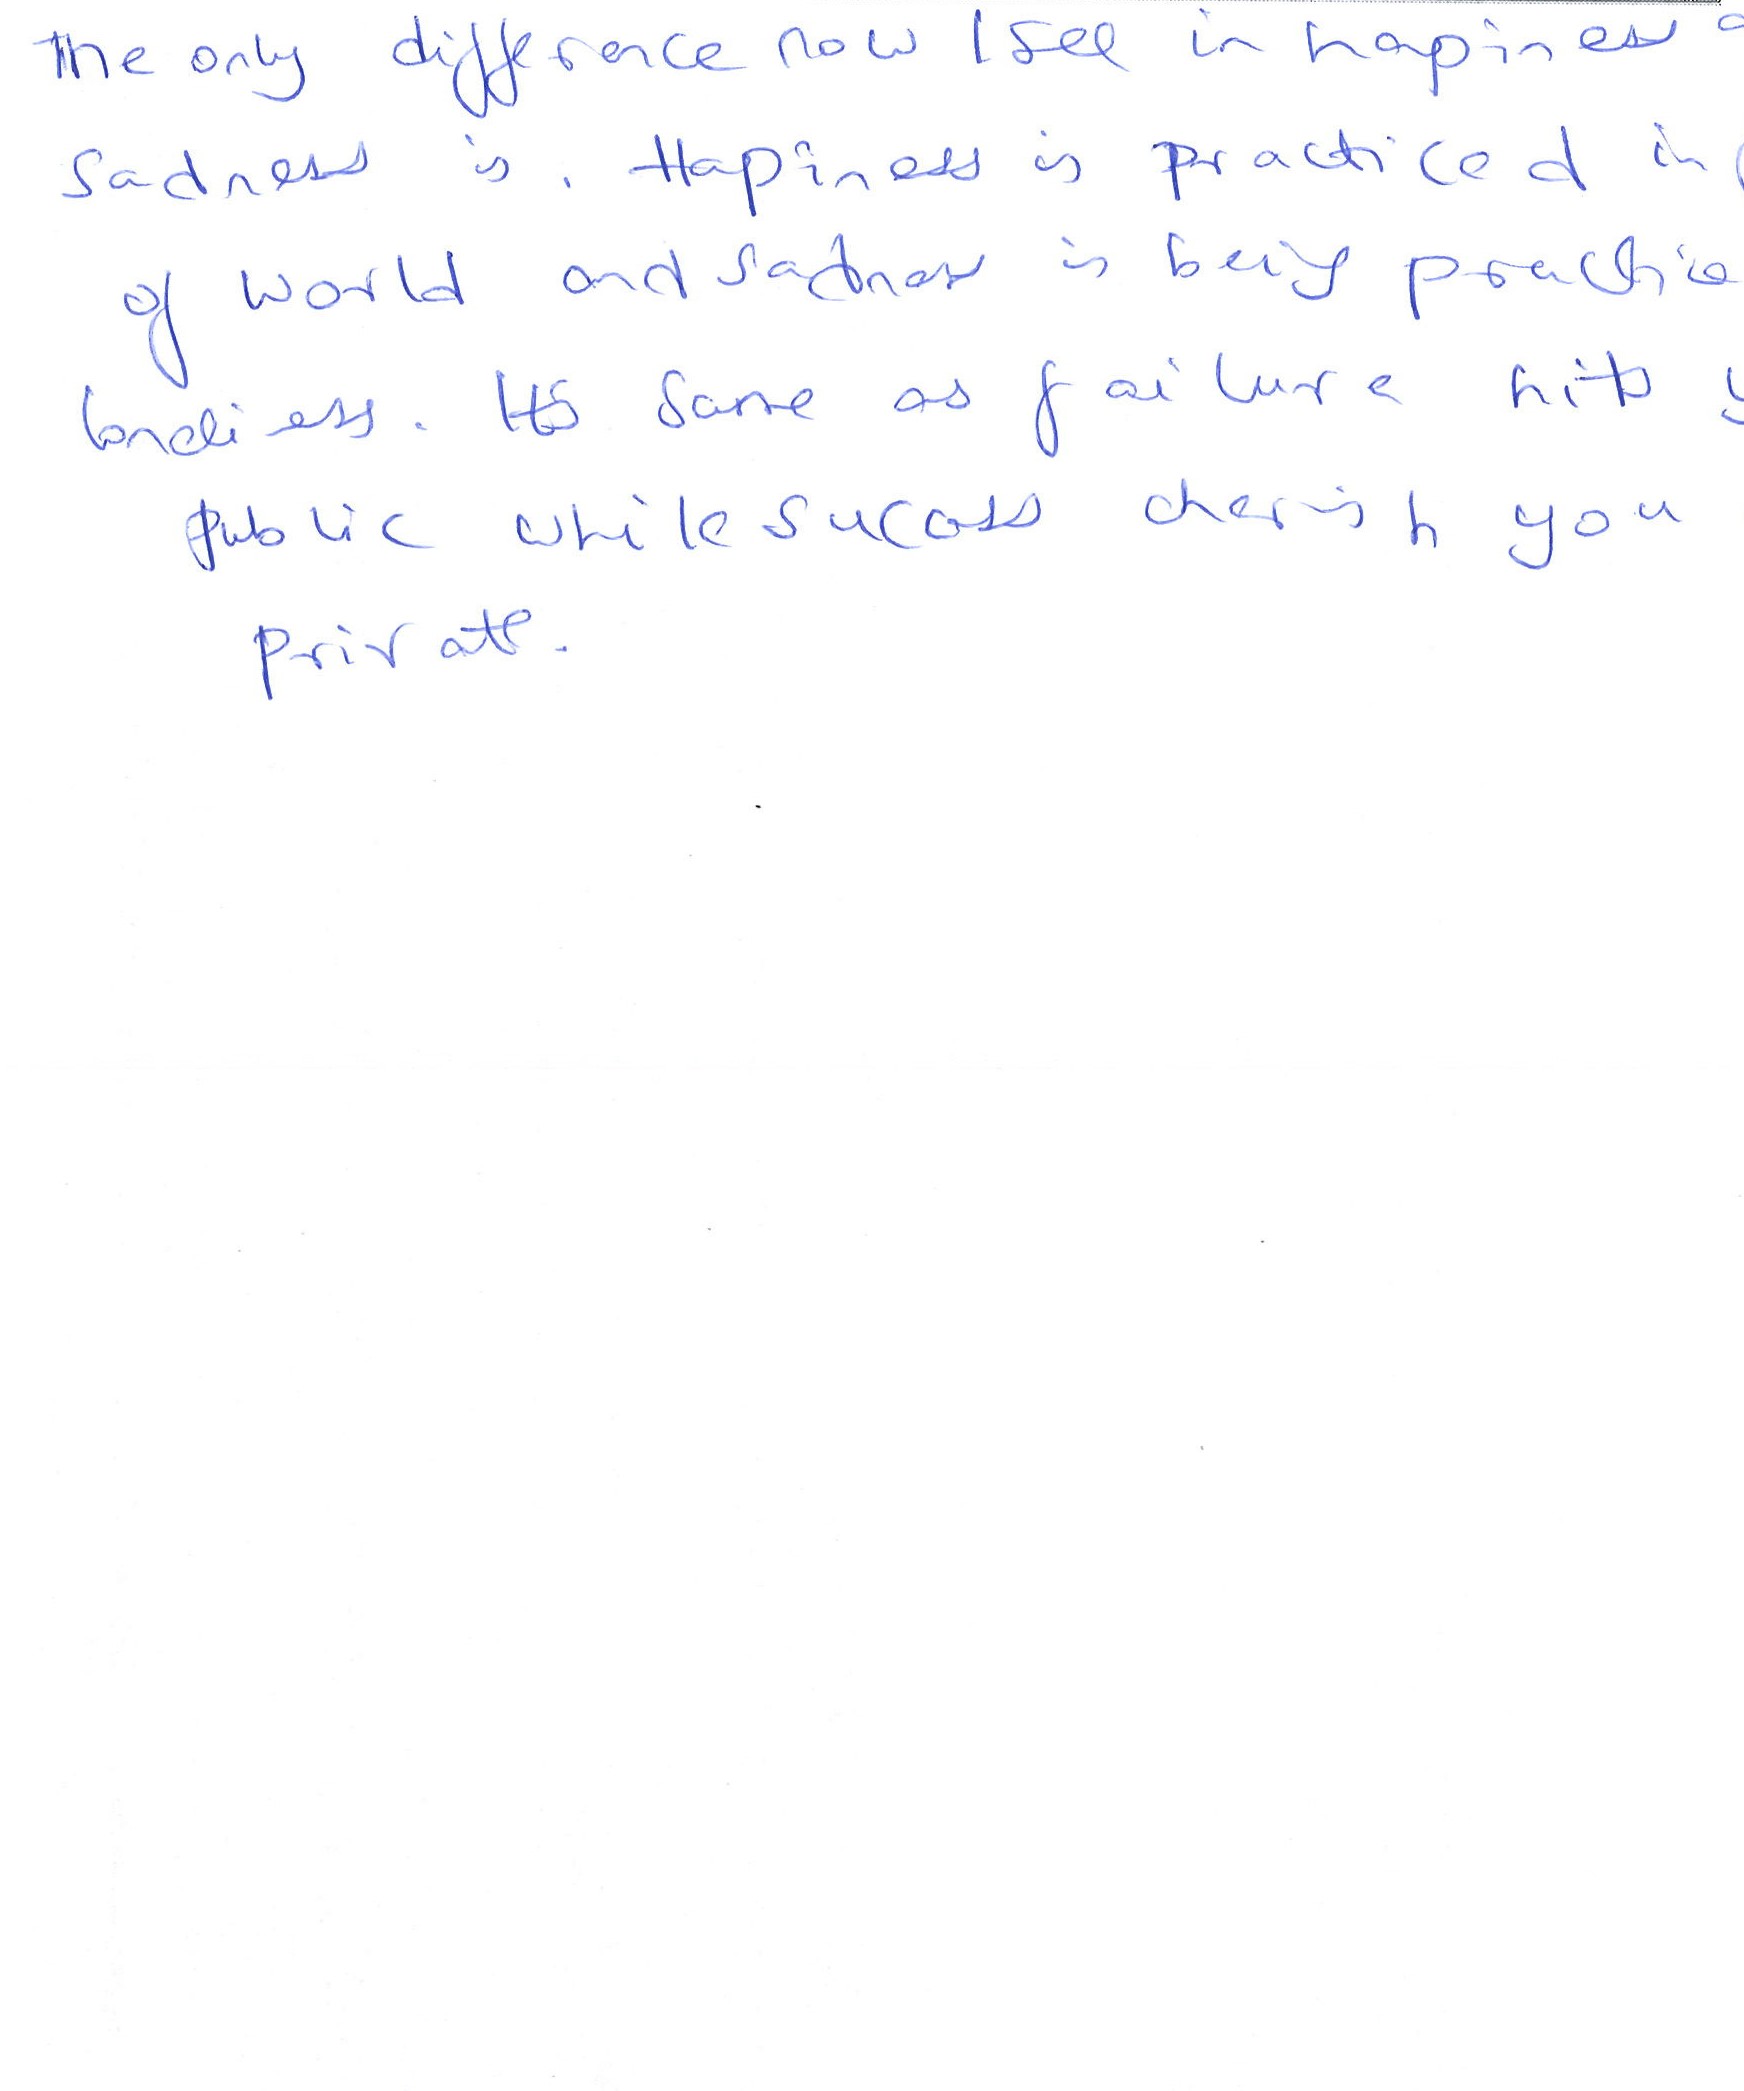 The only difference now I see in hapiness
Sadness is. Hapiness is practiced in
of world and sadness is being practice
loneliess. Its same as failure hits y
public while sucess cherish you
private.